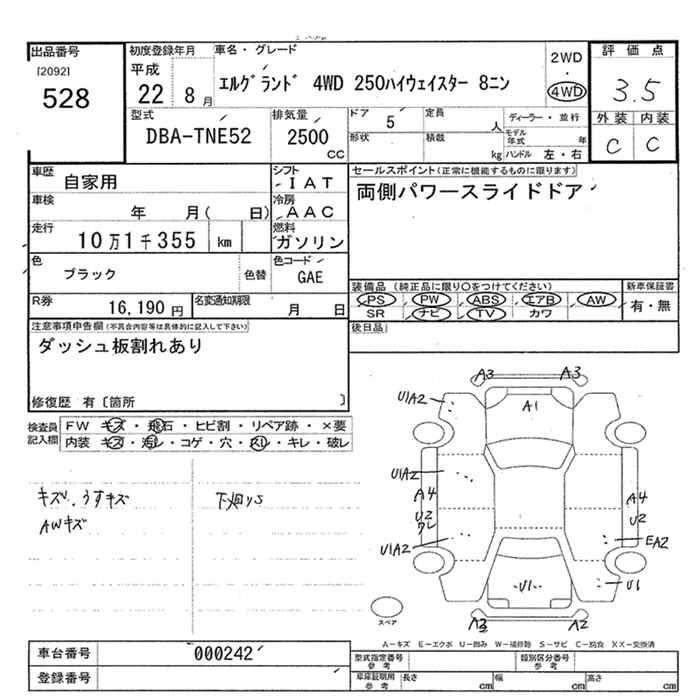 出品番号
[2092]
528
初度登録年月
平成
22 8 月
車名・グレード
エルグランド 4WD 250ハイウェイスター 8ニン
2WD
・
4WD
評価点
3.5
外装 内装
C C
型式
DBA-TNE52
排気量
2500
CC
ドア 5
形状
定員 人
積載 kg
ディーラー・並行
モデル年式 年
ハンドル 左・右
車歴 自家用
シフト IAT
車検 年 月( 日)
冷房 AAC
走行 10万1千355 km
燃料 ガソリン
色 ブラック 色替
色コード GAE
R券 16,190円
名変通知期限 月 日
セールスポイント(正常に機能するものに限ります)
両側パワースライドドア
装備品 (純正品に限り〇をつけてください)
PS PW ABS エアB AW
SR ナビ TV カワ
新車保証書
有・無
後日品
注意事項申告欄(不具合内容等は具体的に記入して下さい)
ダッシュ板割れあり
修復歴 有〔箇所 〕
検査員記入欄
FW キズ・飛石・ヒビ割・リペア跡・×要
内装 キズ・汚レ・コゲ・穴・スレ・キレ・破レ
キズU.うすキズ
AWキズ
下廻りS
A3 A3
U1A2
A1
U1A2
A4
U2
ワレ
U1A2
A4
U2
EA2
U1
U1
A3 A2
スペア
A-キズ E-エクボ U-凹み W-補修跡 S-サビ C-腐食 XX-交換済
車台番号 000242
登録番号
型式指定番号 参考
類別区分番号 参考
車庫証明用 参考
長さ cm 幅 cm 高さ cm